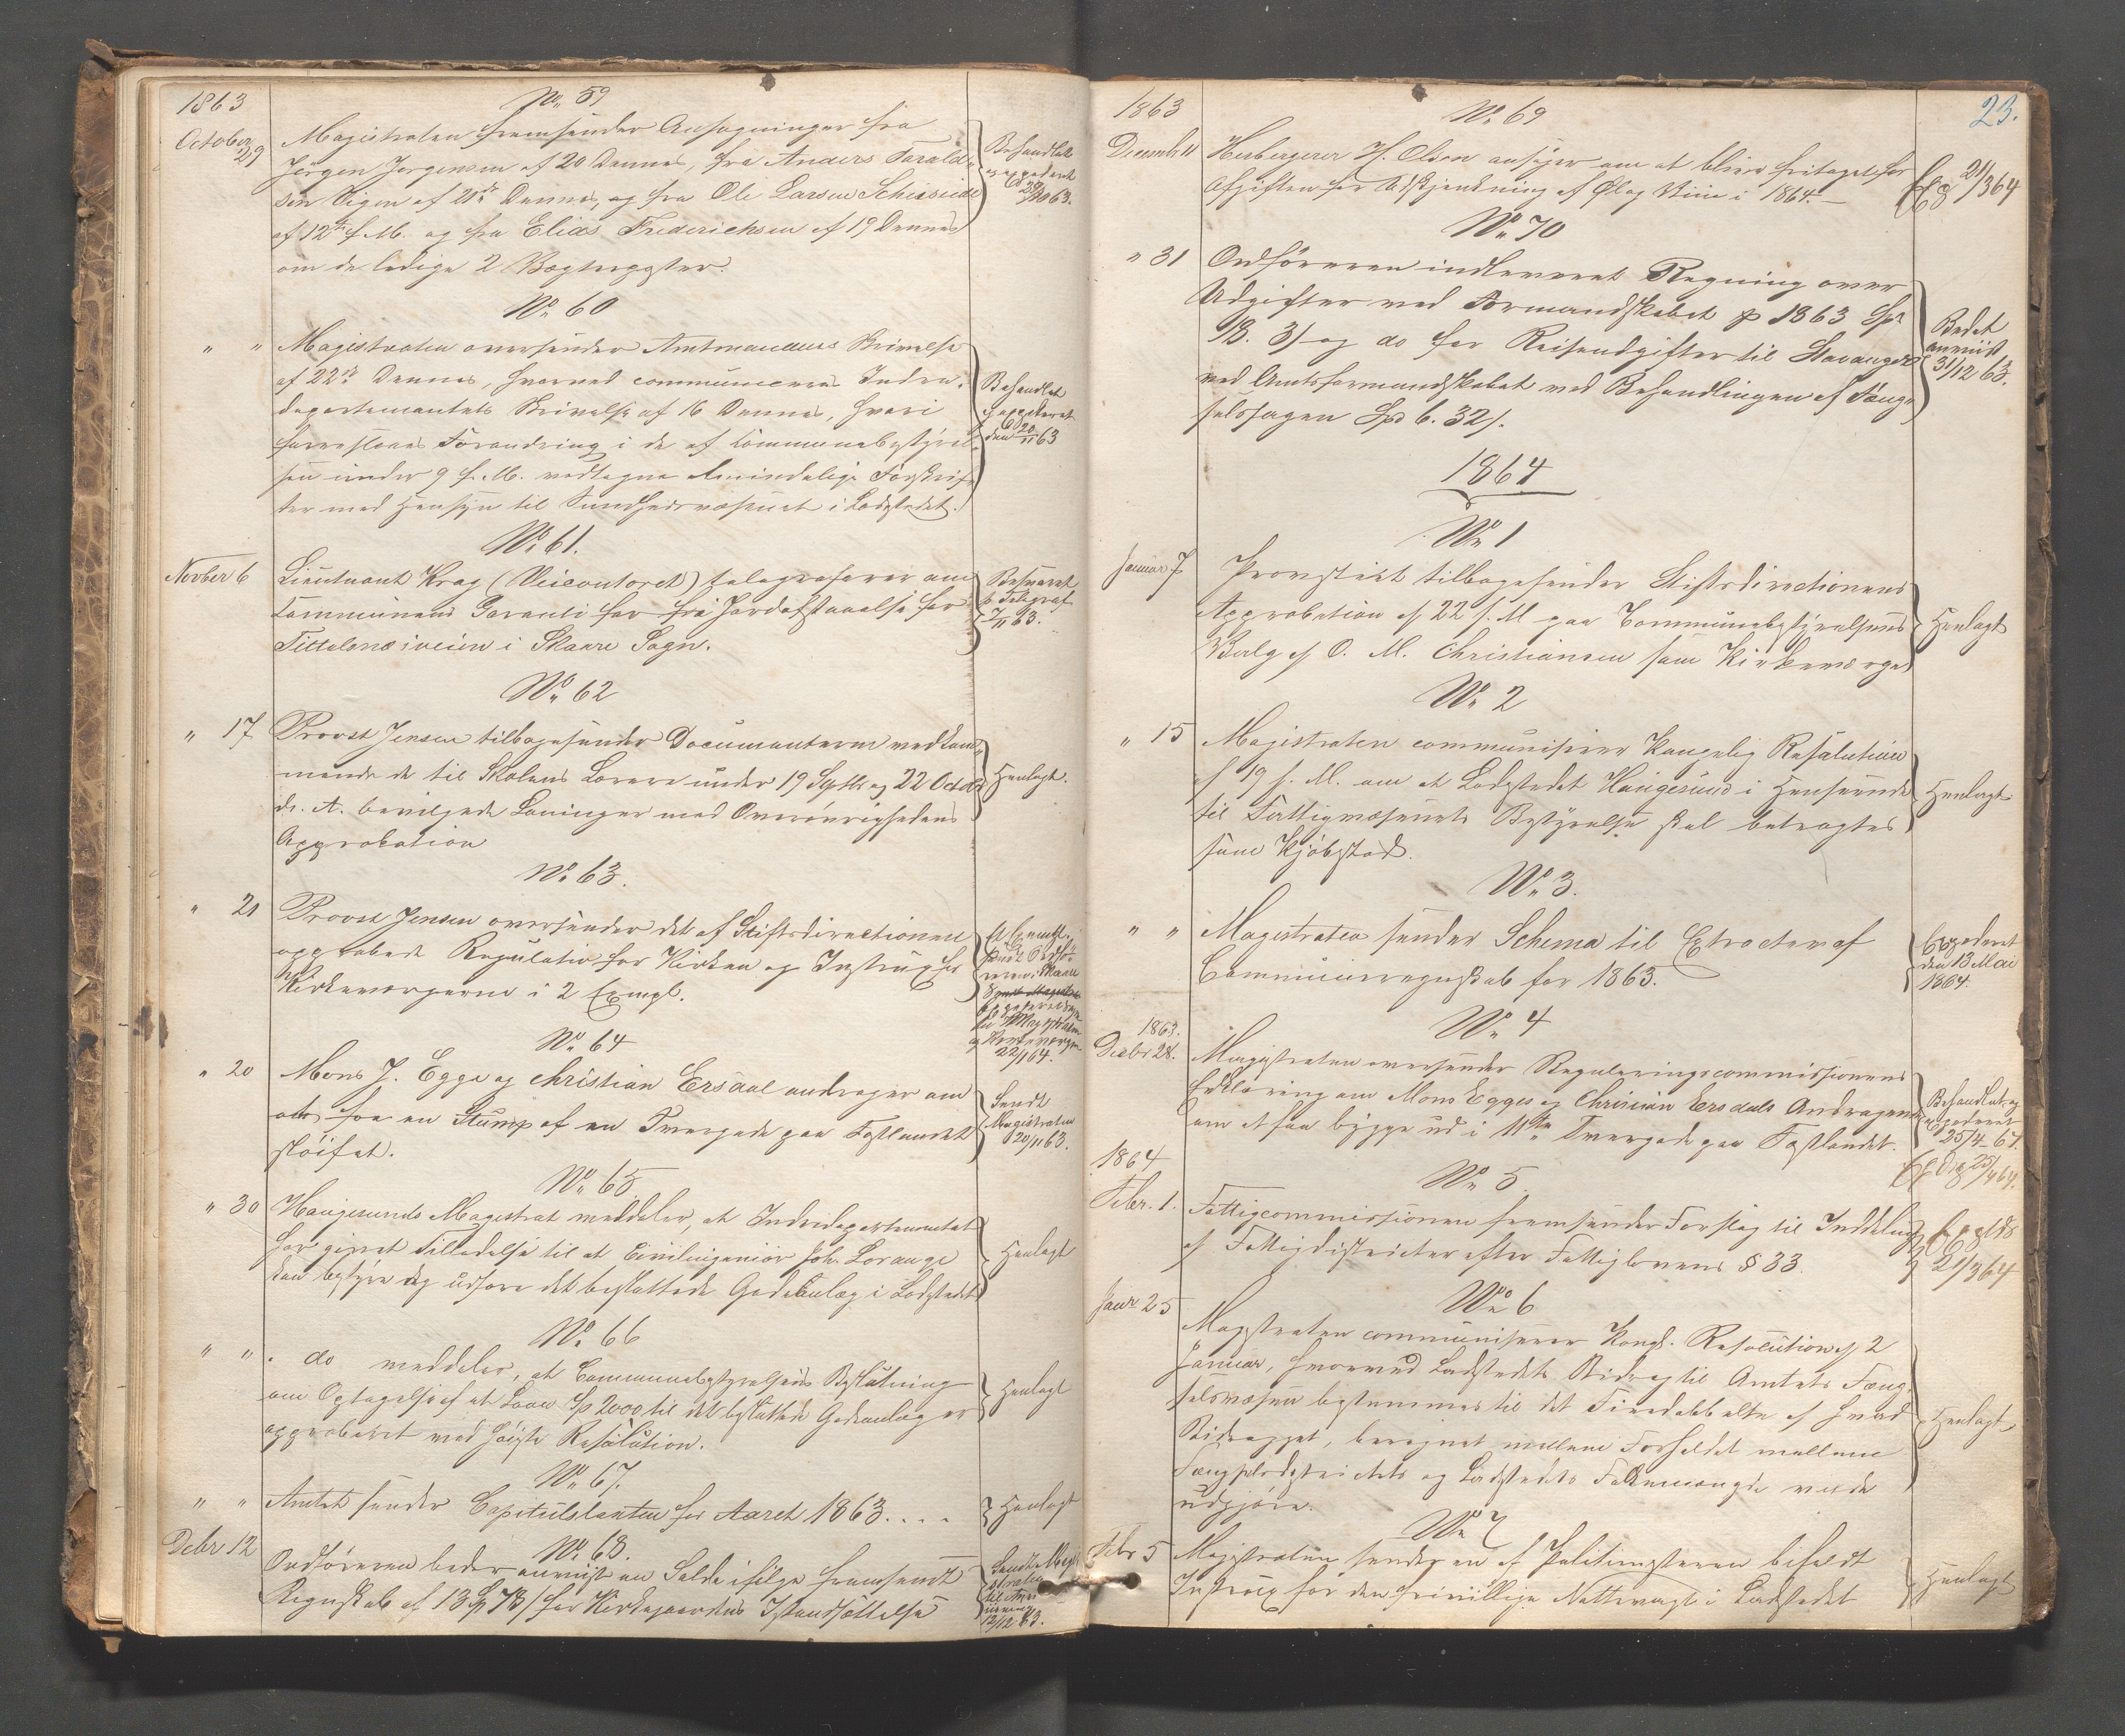 1863
No 59
October 29
Magistraten fremsender Ansøgninger fra
Jörgen Jörgensen af 20 Dennes, fra Anders Tarald-
sen Eigen af 21de Dennes, og fra Ole Larsen
af 12te f. M. og fra Elias Frederichsen af 19 Dennes
om de ledige 2 Vægterposter.
Behandlet
29/10 63.
No 60
" "
Magistraten oversender Amtmandens Skrivelse
af 22de Dennes, hvorved communiceres Indre-
departementets Skrivelse af 16 Dennes, hvori
foreslaaes Forandring i de af Communebestyrel-
sen under 9 f. M. vedtagne Almindelige Forskrif-
ter med Hensyn til Sundhedsvæsenet i Ladestedet.
Behandlet
Expederet
den 20/11 63
No 61.
Novber 6
Lieutnant Krag (Veicontoret) telegraferer om
Communens Garanti for fri Jordafstaaelse for
i Skaare Sogn.
Besvaret
p. Telegraf
7/11 63.
No 62
" 17
Provst Jensen tilbagesender Documenterne vedkom-
mende de til Skolens Lærere under 19 Septbr og 22 Octobr
d. A. bevilgede Lønninger med Overøvrighedens
Approbation
Henlagt.
No 63.
" 21
Provst Jensen oversender det af Stiftsdirectionen
approberede Regulativ for Kirken og Instrux for
Kirkeværgerne i 2 Exempl.
Et Exempl.
22/1 64.
No 64
" 20
Mons J. Egge og Christian Ersdal andrager om
at faa en Stump af en Tvergade paa Fastlandet
sløifet.
Sendt
Magistraten
20/11 63.
No 65
" 30
Haugesunds Magistrat meddeler, at Indredepartementet
har givet Tilladelse til at Civilingeniør Joh. Lorange
kan bestyre og udføre det besluttede Gadeanlæg i Ladestedet
Henlagt
No 66
" "
do meddeler, at Communebestyrelsens Beslutning
om Optagelse af et Laan Sp 2000 til det besluttede Gadeanlæg er
approberet ved høieste Resolution.
Henlagt
No 67.
" "
Amtet sender Capitulstaxten for Aaret 1863....
Henlagt
No 68.
Debr 12
Ordføreren beder anvist en Saldo ifølge fremsendt
Regnskab af 13 Sp 78 / for Kirkegaardens Istandsættelse
Sendt Magi-
straten
til Anvi-
isning
12/12 63.
23.
1863
No 69
Decembr 11
Herbergerer H. Olsen ansøger om at blive fritaget for
Afgiften for Udskjænkning af Øl og Viin i 1864. —
Exp 21/3 64
No 70
" 31
Ordføreren indleveret Regning over
Udgifter ved Formandskabet p 1863 Spd
13. 31 og do for Reiseudgifter til Stavanger
ved Amtsformandskabet ved Behandlingen af Fæng-
selssagen Spd 6. 32 /.
Bedet
anviist
31/12 63.
1864
No 1
Januar 7
Provstiet tilbagesender Stiftsdirectionens
Approbation af 22 f. M paa Communebestyrelsens
Valg af O. M. Christiansen som Kirkeværge
Henlagt
No 2
" 15
Magistraten communiserer Kongelig Resolution
af 19 f. M. om at Ladestedet Haugesund i Henseende
til Fattigvæsenets Bestyrelse skal betragtes
som Kjøbstad.
Henlagt
No 3.
" "
Magistraten sender Schema til Extracter af
Communeregnskab for 1863.
Expederet
den 13 Mai
1864.
No 4
1863.
Decbr 28.
Magistraten oversender Reguleringscommissionens
Erklæring om Mons Egges og Christian Ersdals Andragende
om at faa bygge ud i 11te Tvergade paa Fastlandet.
Behandlet og
expederet
25/4 - 67.
1864
No 5.
Febr. 1.
Fattigcommissionen fremsender Forslag til Inddeling
af Fattigdistricter efter Fattiglovens § 33
21/3 64
No 6
Janr 25
Magistraten communiserer Kongl. Resolution af 2
Januar, hvorved Ladestedets Bidrag til Amtets Fæng-
selsvæsen bestemmes til det Firedobbelte af hvad
Bidraget, beregnet mellem Forholdet mellem
Fængselsdistrictets og Ladestedets Folkemængde vilde
udgjøre.
Henlagt
No 7
Febr 5
Magistraten sender en af Politimesteren bifaldt
Instrux for den frivillige Nattevagt i Ladestedet
Henlagt